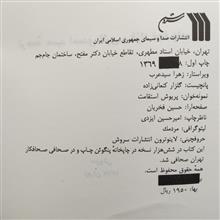 سروش
انتشارات صدا و سیمای جمهوری اسلامی ایران
تهران، خیابان استاد مطهری، تقاطع خیابان دکتر مفتح، ساختمان جام‌جم
چاپ اول: ۱۳۶۹
ویراستار: زهرا سیدعرب
پانچیست: گلزار کنعانی‌زاده
نمونه‌خوان: پریوش استقامت
صفحه‌آرا: حسین فخریان
ناظرچاپ: امیرحسین ایزدی
لیتوگرافی: مردمک
حروفچینی: لاینوترون انتشارات سروش
این کتاب در شش‌هزار نسخه در چاپخانه پنگوئن چاپ و در صحافی صحافکار
تهران صحافی شد.
همه حقوق محفوظ است.
بها: ۱۹۵۰ ریال